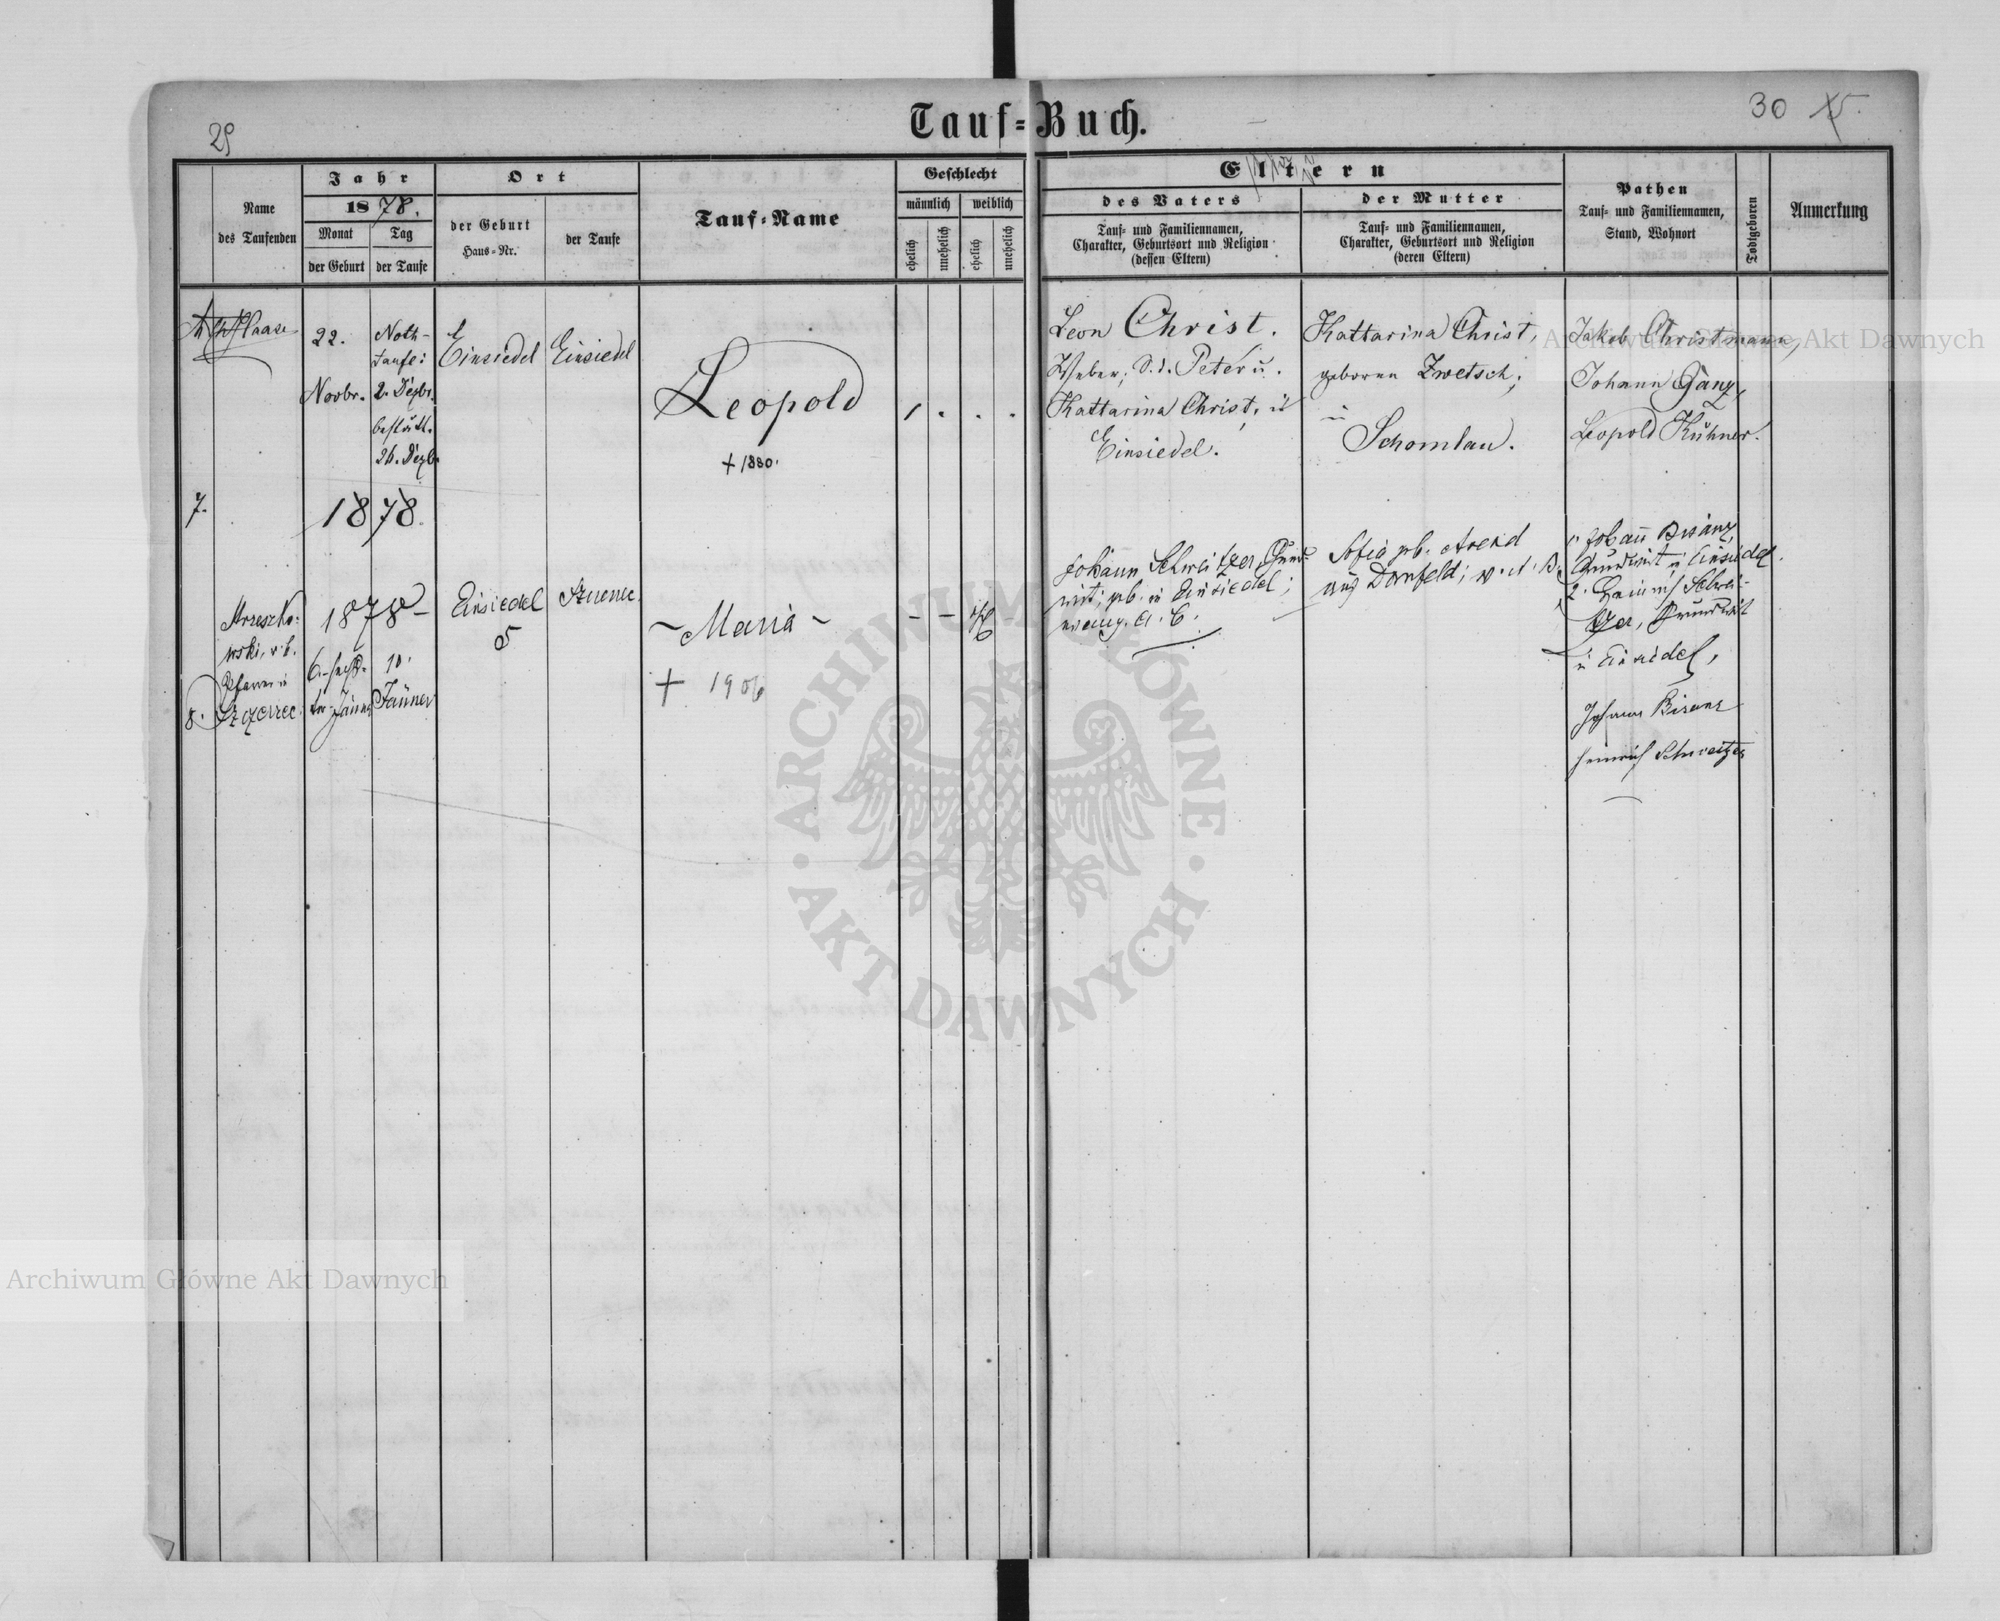 Tauf=Buch.
29
30 15.
Name
des Taufenden
Jahr
1878.
Monat
der Geburt
Tag
der Taufe
Ort
der Geburt
Haus=Nr.
der Taufe
Tauf=Name
Geschlecht
männlich
weiblich
ehelich
unehelich
ehelich
unehelich
Eltern
des Vaters
Tauf= und Familiennamen,
Charakter, Geburtsort und Religion
(dessen Eltern)
der Mutter
Tauf= und Familiennamen,
Charakter, Geburtsort und Religion
(deren Eltern)
Pathen
Tauf= und Familiennamen,
Stand, Wohnort
Todtgeboren
Anmerkung
7.
Haase
22.
Novbr.
Noth-
taufe:
2. Dezbr.
bestätt.
26. Dezb.
1878.
Einsiedel
Einsiedel
Leopold
+ 1880.
Leon Christ.
Weber, S.d. Peter u.
Kattarina Christ, in
Einsiedel.
Kattarina Christ,
geborene Zwetsch,
in
Schomlau.
Jakob Christmann,
Johann Ganz,
Leopold Kühner.
8.
Mrozesko-
wski, v. b.
Pfarrer in
Szczerzec.
1878
6. sechs-
ter Jänner
10.
Jänner
Einsiedel
5
~ Maria ~
+ 1906
Johann Schweitzer Grund-
wirt; geb. in Einsiedel;
evang. A. C.
Sofia geb. Arend
aus Dornfeld;
1. Johann Bisanz,
Grundwirt in Einsiedel.
2. Heinrich Schwei-
tzer, Grundwirt
in Einsiedel,
Johann Bisanz
Heinrich Schweitzer
ARCHIWUM GŁÓWNE AKT DAWNYCH
Archiwum Główne Akt Dawnych
Archiwum Główne Akt Dawnych